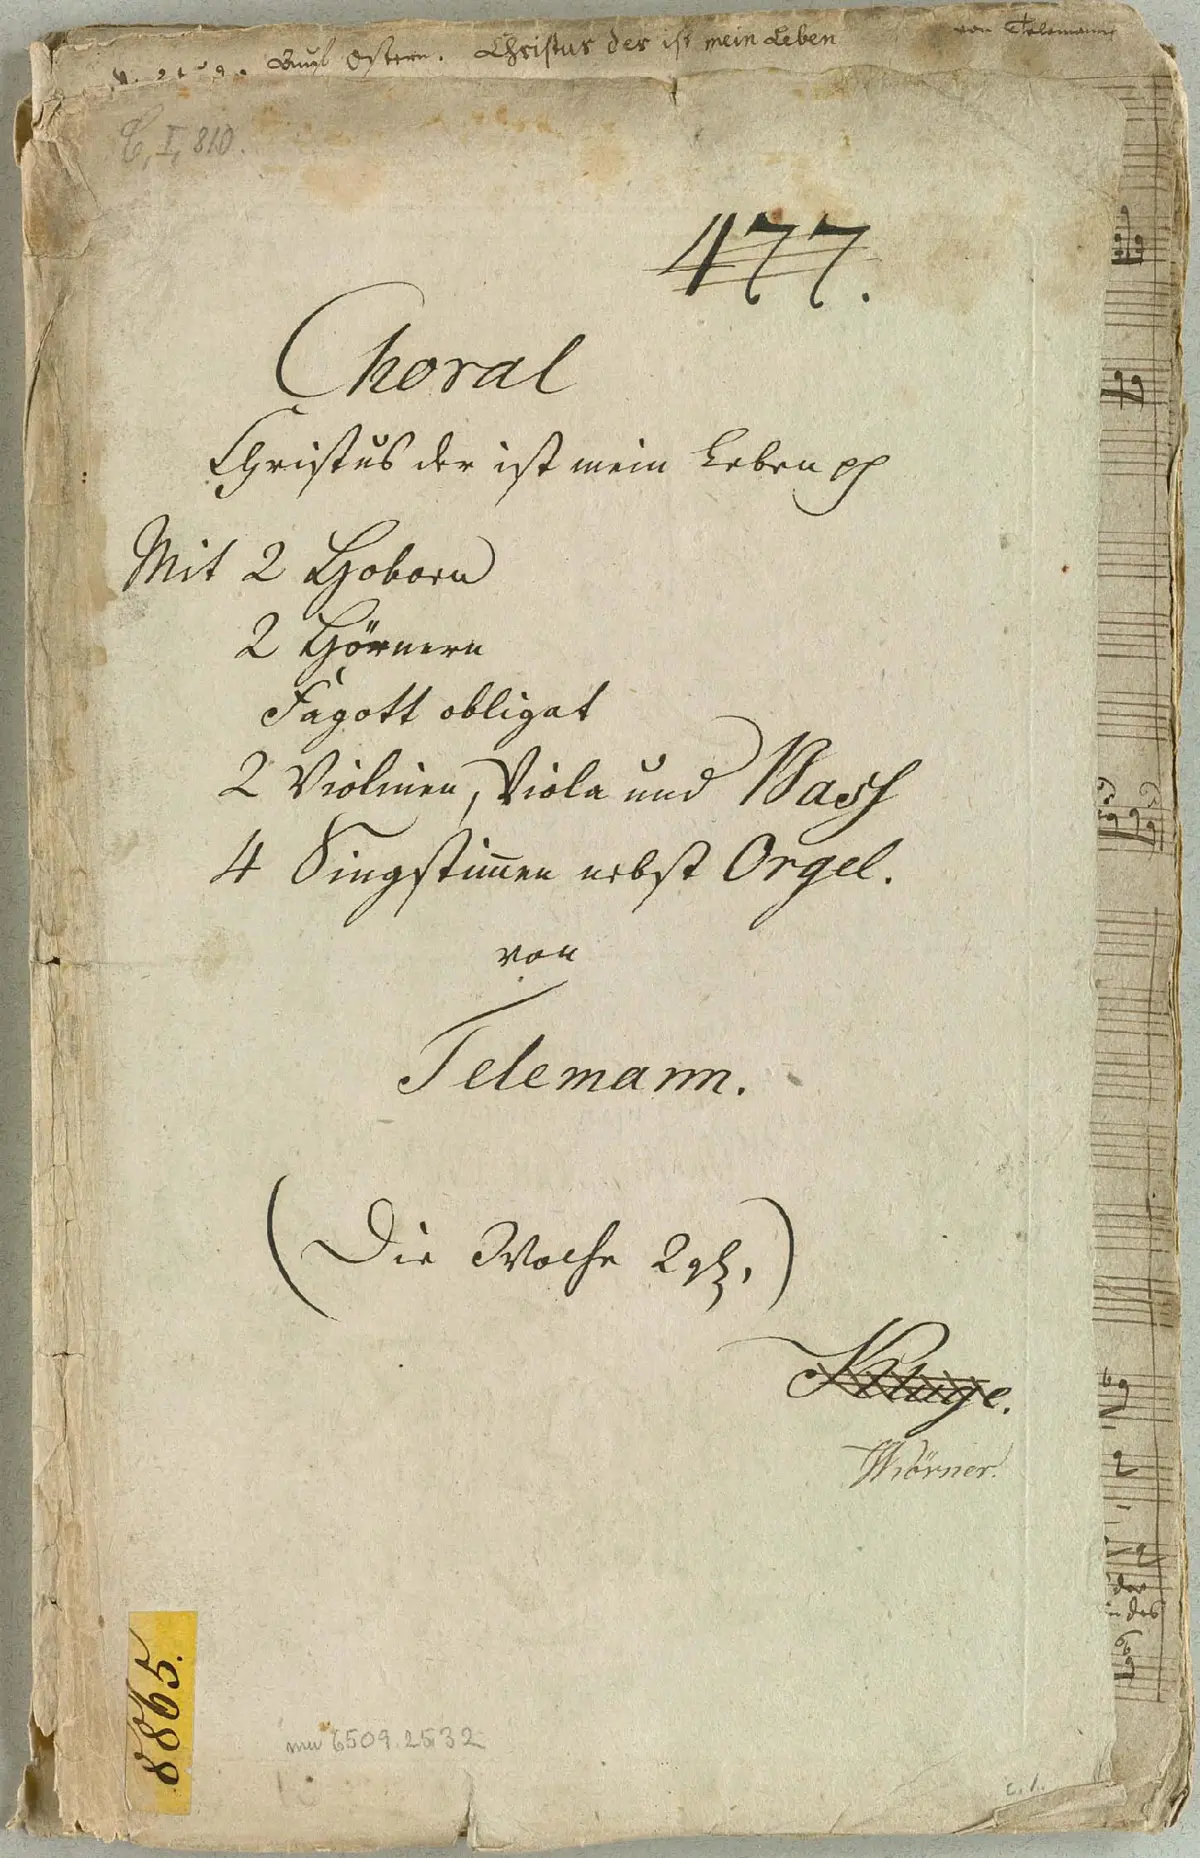 Ostern. Christus der ist mein Leben von Telemann
C, I, 810.
477.
Choral
Christus der ist mein Leben pp
Mit 2 Hoboen
2 Hörnern
Fagott obligat
2 Violinen, Viola und Bass
4 Singstim̅en nebst Orgel.
von
Telemann.
(Die Woche 2 gl.)
Kluge.
Wörner.
8865.
mu 6509.2532
der
des